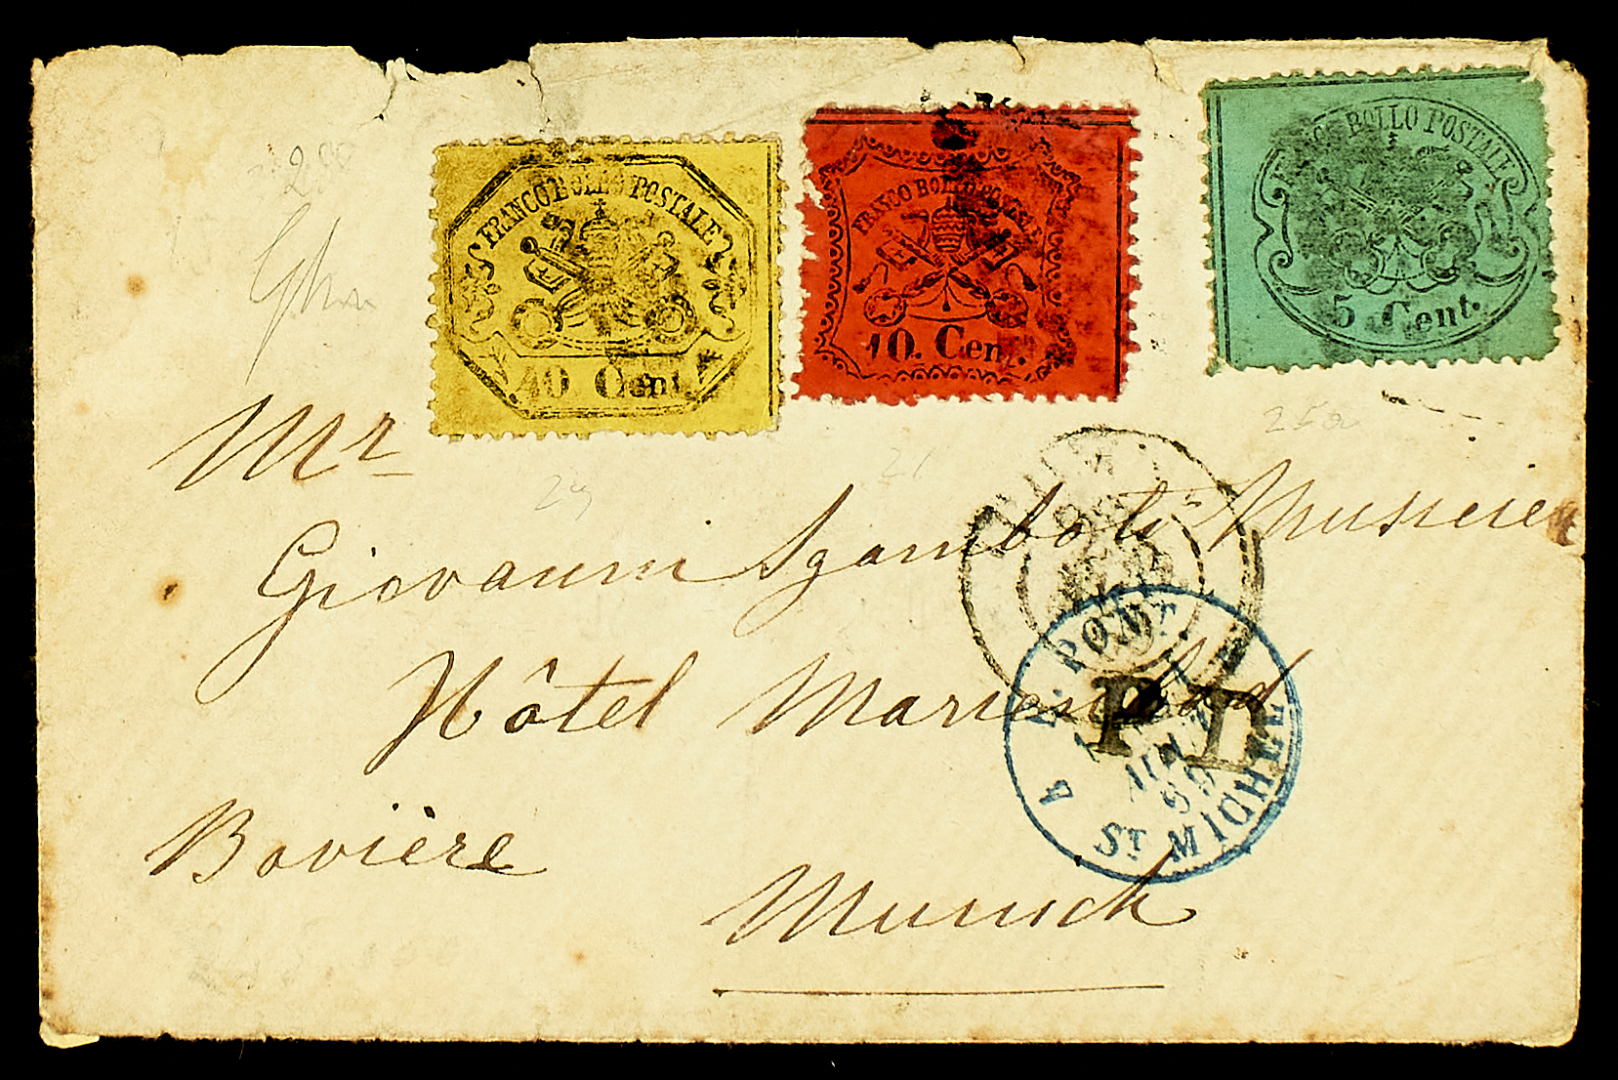 FRANCO BOLLO POSTALE
40 Cent.
FRANCO BOLLO POSTALE
10. Cent.
FRANCO BOLLO POSTALE
5 Cent.
25a
29
21
Mr
Giovanni Sgamboti Musicien
Hôtel Marienbad
Bavière
Munich
PD
E. PONT.
JUIN
69
ST MICHEL